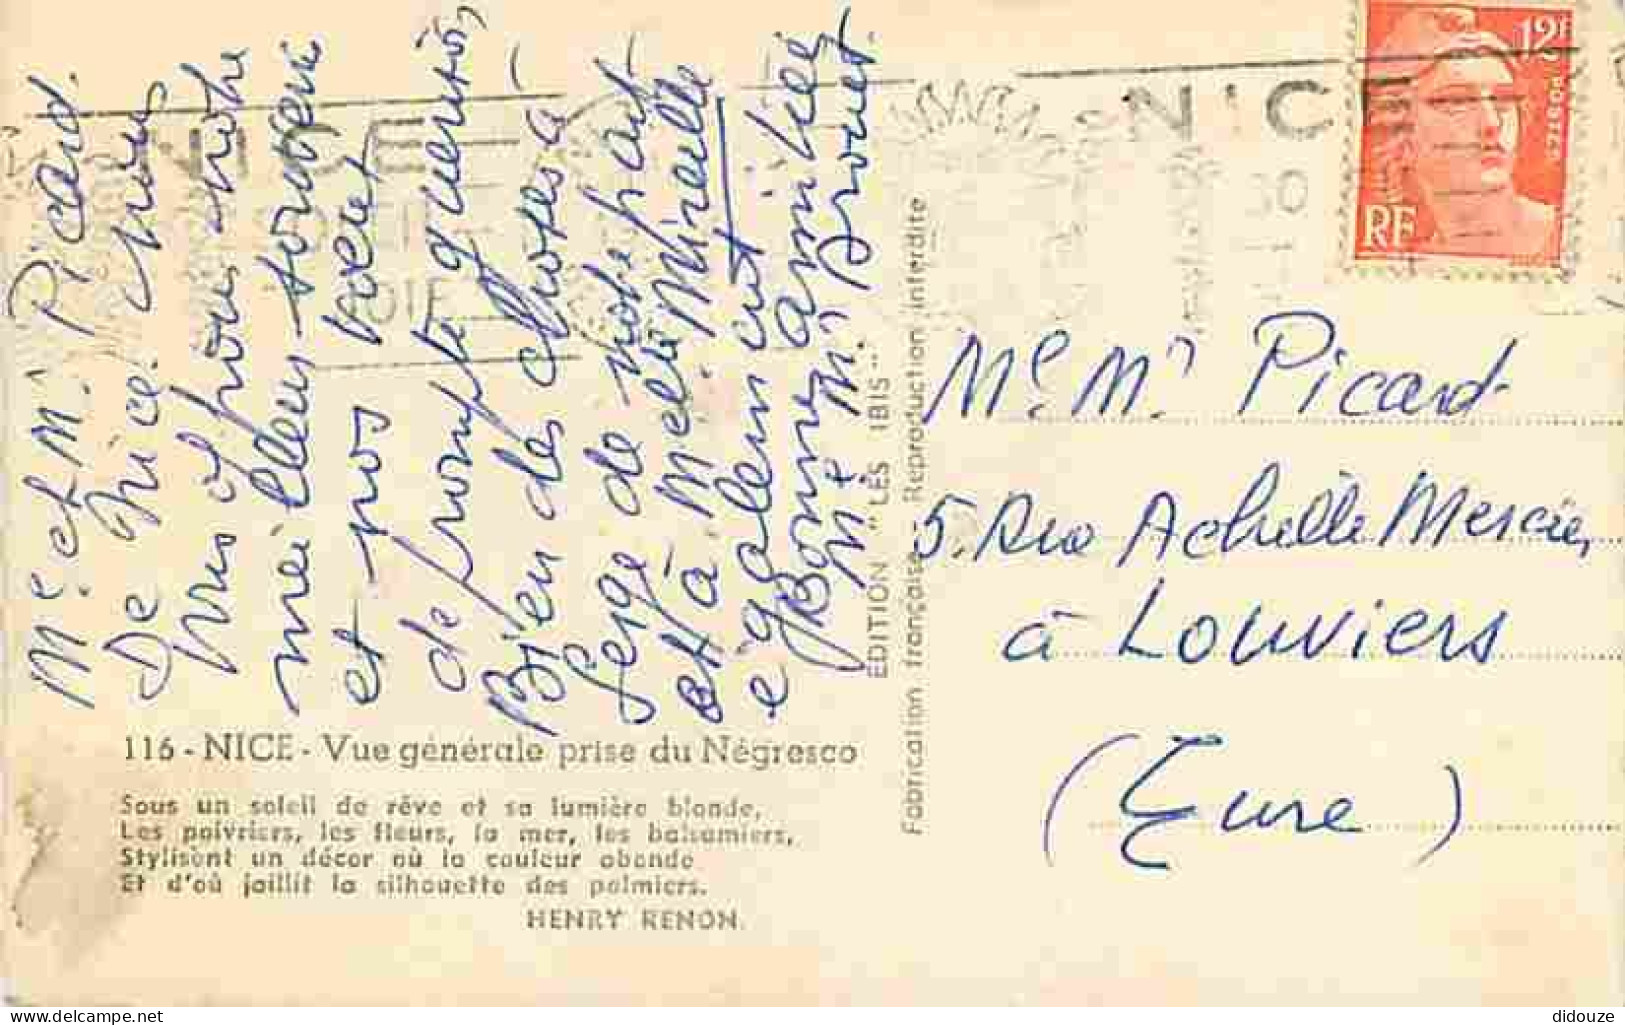 Me et M. Picard.
De Nice. nous
vous adressons notre
meilleur souvenir
et nos voeux
de prompte guerison,
Bien des choses à
Serge de notre part
et à Melle Mireille
egalement
Bonne amitiés
Me M. Drouet.
NICE
12F
POSTES
RF
Me. Mr Picard
5. Rue Achille Mercier
à Louviers
(Eure)
EDITION "LES IBIS"
Fabrication française - Reproduction interdite
116 - NICE - Vue générale prise du Négresco
Sous un soleil de rêve et sa lumière blonde,
Les poivriers, les fleurs, la mer, les balsamiers,
Stylisent un décor où la couleur abonde
Et d'où jaillit la silhouette des palmiers.
HENRY RENON.
delcampe.net
didouze